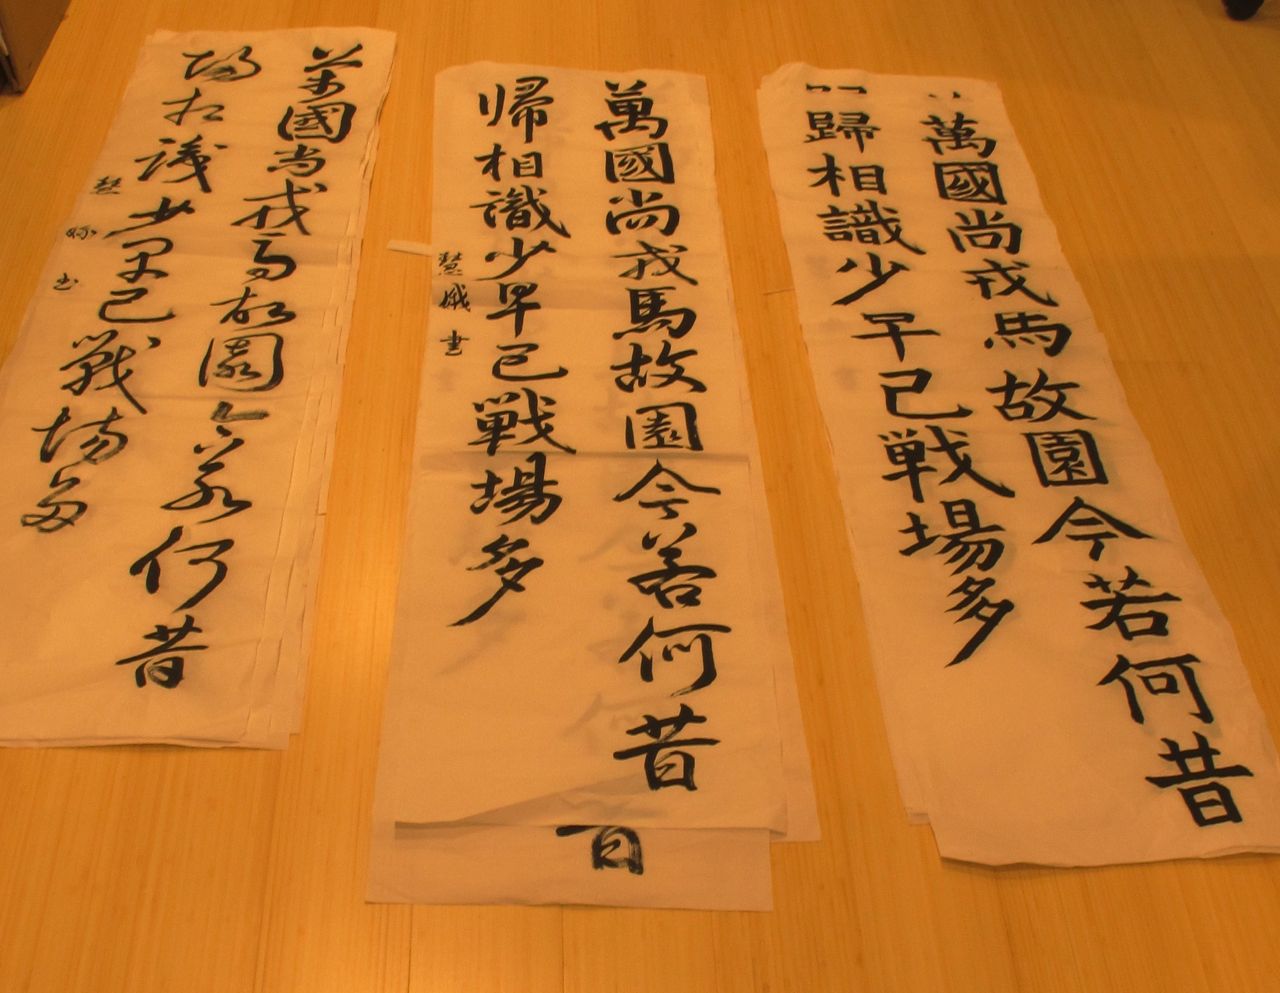 萬國尚戎馬故園今若何昔
歸相識少早已戰場多
萬國尚戎馬故園今若何昔
帰相識少早已戰場多
慧娥書
昔
萬國尚戎馬故園今若何昔
歸相識少早已戰場多
慧娥书